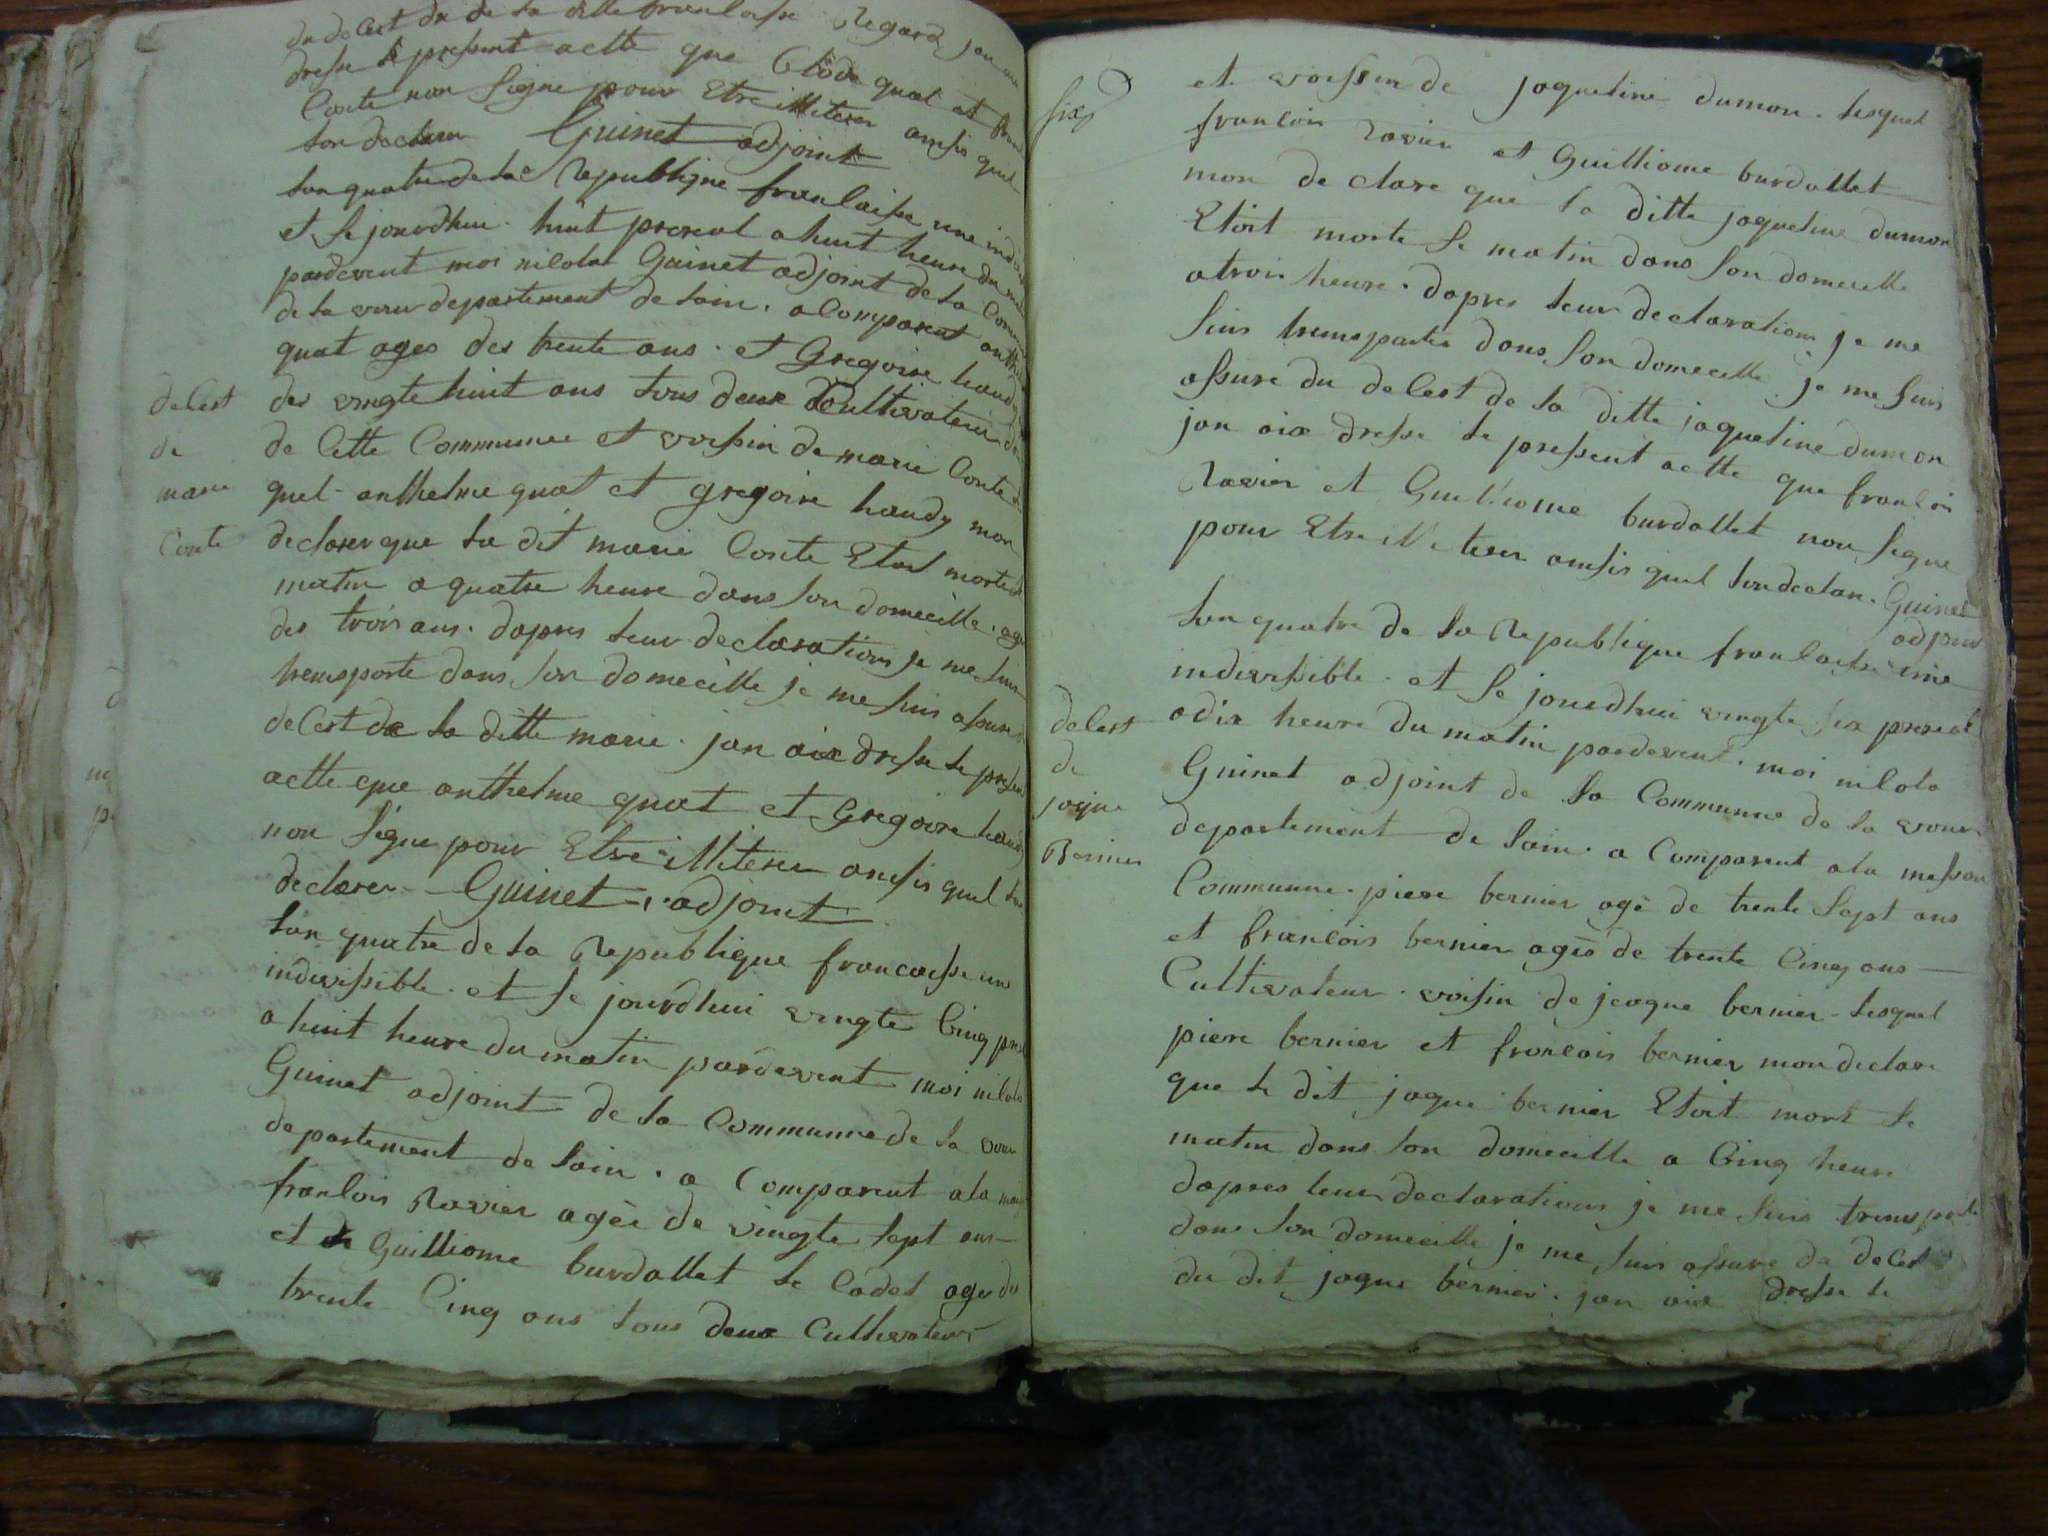 du delest du de la ditte franlaise Regard jan
dresse le pressent actte que Clode quat et
Conte non signe pour Etre illiterer ansis quil
son declarer Guinet adjoint
lan quatre de la Republique franlaise une
et le jourdhui huit prereal a huit heure du
pardevent moi nilola Guinet adjoint de la
de la vour departement de lain. a Comparent
quat ages des trente ans. et Gregoire haudy
delest
de
marie
Conte
des vingte huit ans tous deux Cultivateur
de Cette Communne et voissin de marie Conte
quel anthelme quat et gregoire haudy mon
declarer que la dit marie Conte Etoit morte
matin a quatre heure dans son domecille.
des trois ans. dapres leur declarations je me suis
trensporte dans son domecille je me suis assure
delest de la ditte marie. jan aix dresse le
actte que anthelme quat et Gregoire haudy
non signe pour Etre illiterer ansis quil
declarer Guinet, adjoint
lan quatre de la Republique francaisse une
indivissible. et le jourdhui vingte Cinq
a huit heure du matin pardevent moi nilola
Guinet adjoint de la Communne de la vour
departement de lain. a Comparent a la
franlois Ravier agée de vingte sept ans
et de Guilliome burdallet le Cadet age des
trente Cinq ans tous deux Cultivateur
six
et voissin de jaqueline dumon. lesquel
franlois Ravier et Guilliome burdallet
mon de clare que la ditte jaqueline dumon
Etoit morte le matin dans son domecille
a trois heure. dapres leur declarations je me
suis trensporter dans son domecille je me suis
assure du delest de la ditte jaqueline dumon
jan aix dresse le pressent actte que franlois
Ravier et Guilliome burdallet non signe
pour Etre illiterer ansis quil son declare. Guinet
adjoint
lan quatre de la Republique franlaisse une
indivissible. et le jourdhui vingte six prereal
delest
de
jaque
Bernier
a dix heure du matin pardevent. moi nilola
Guinet adjoint de la Communne de la vour
departement de lain. a Comparent a la messon
Communne. piere bernier agé de trente sept ans
et francois bernier agés de trente Cinq ans
Cultivateur. voisin de jeaque bernier lesquel
piere bernier et franlois bernier mon declare
que le dit jaque bernier Etoit mort le
matin dans son domecille a Cinq heure
dapres leur declarations je me suis transporte
dans son domecille je me suis assure du delest
du dit jaque bernier. jan aix dresse le